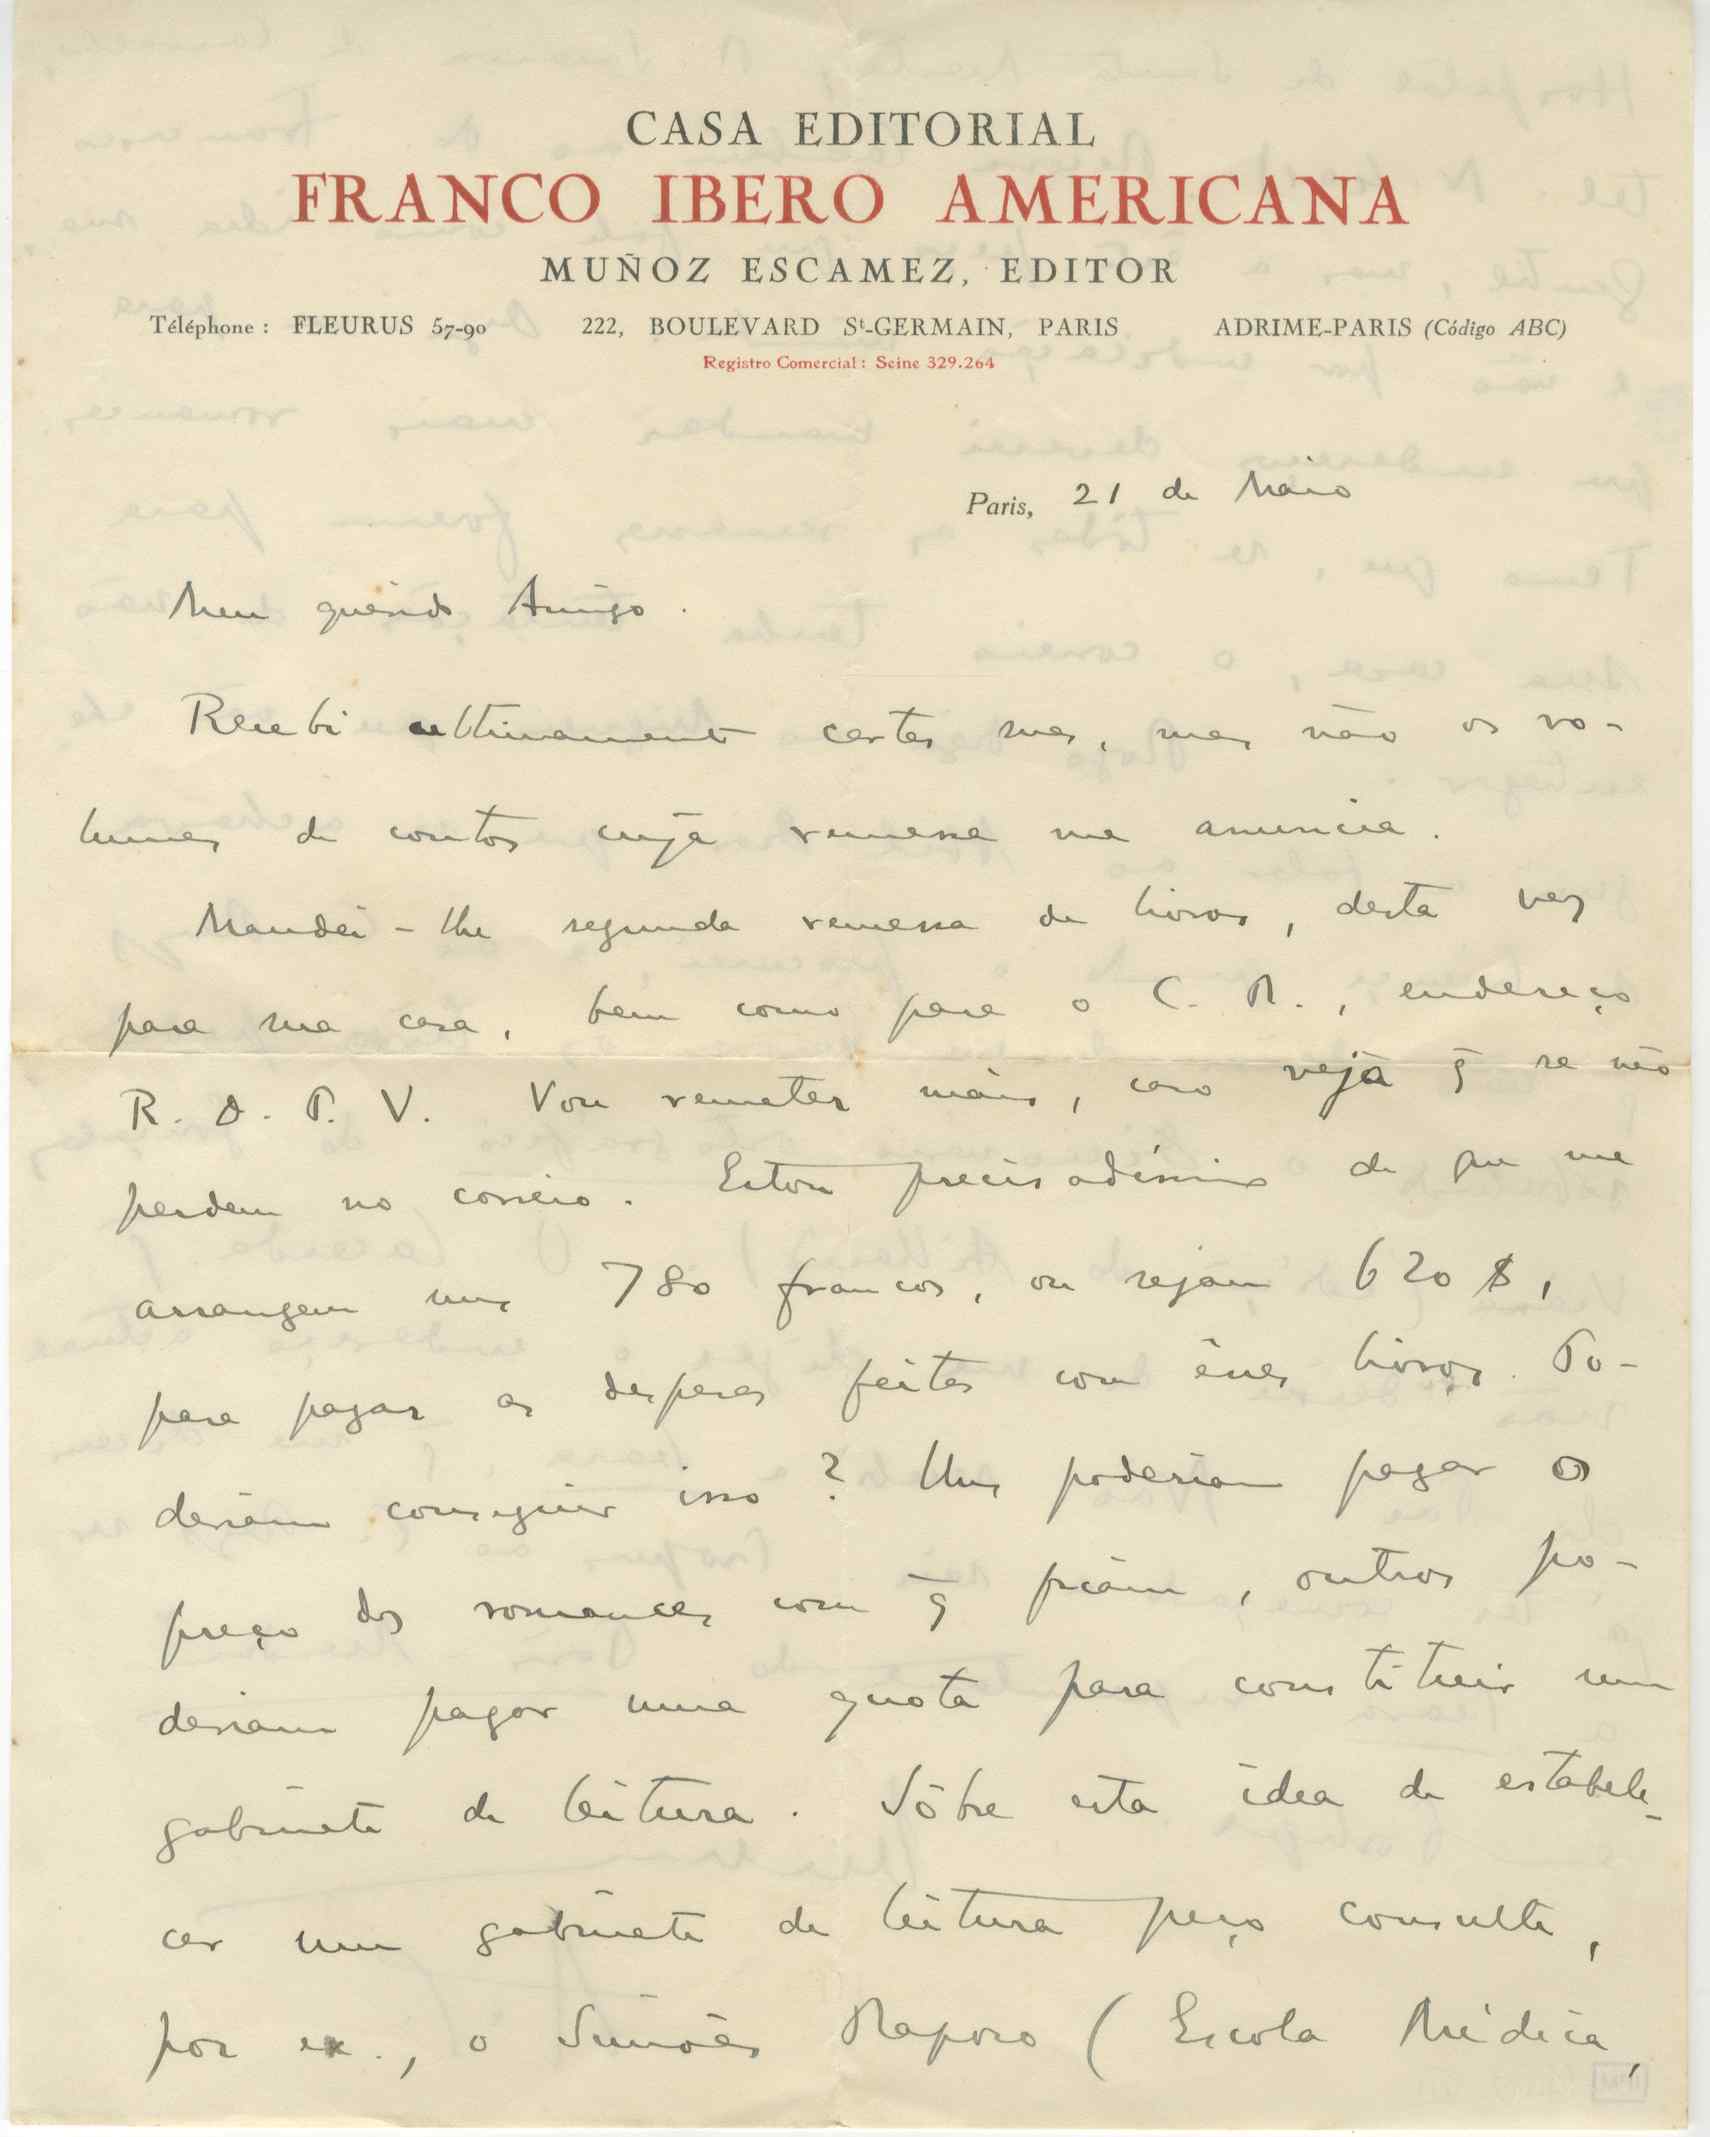 CASA EDITORIAL
FRANCO IBERO AMERICANA
MUÑOZ ESCAMEZ, EDITOR
Téléphone : FLEURUS 57-90 222, BOULEVARD St-GERMAIN, PARIS ADRIME-PARIS (Código ABC)
Registro Comercial : Seine 329.264
Paris, 21 de Maio
Meu querido Amigo.
Recebi ultimamente cartas suas, mas não os vo-
lumes de contos cuja remessa me anuncia.
Mandei-lhe segunda remessa de livros, desta vez
para sua casa, bem como para o C. R., endereço
R. D. P. V. Vou remeter mais, caso veja q̄ se não
perdem no correio. Estou precisadíssimo de que me
arrangem uns 780 francos, ou sejam 620$,
para pagar as despesas feitas com êsses livros. Po-
deriam conseguir isso? Uns poderiam pagar o
preço dos romances com q̄ ficam, outros po-
deriam pagar uma quota para constituir um
gabinete de leitura. Sôbre esta idea de estabele-
cer um gabinete de leitura peço consulte,
por ex., o Simões Raposo (Escola Médica,